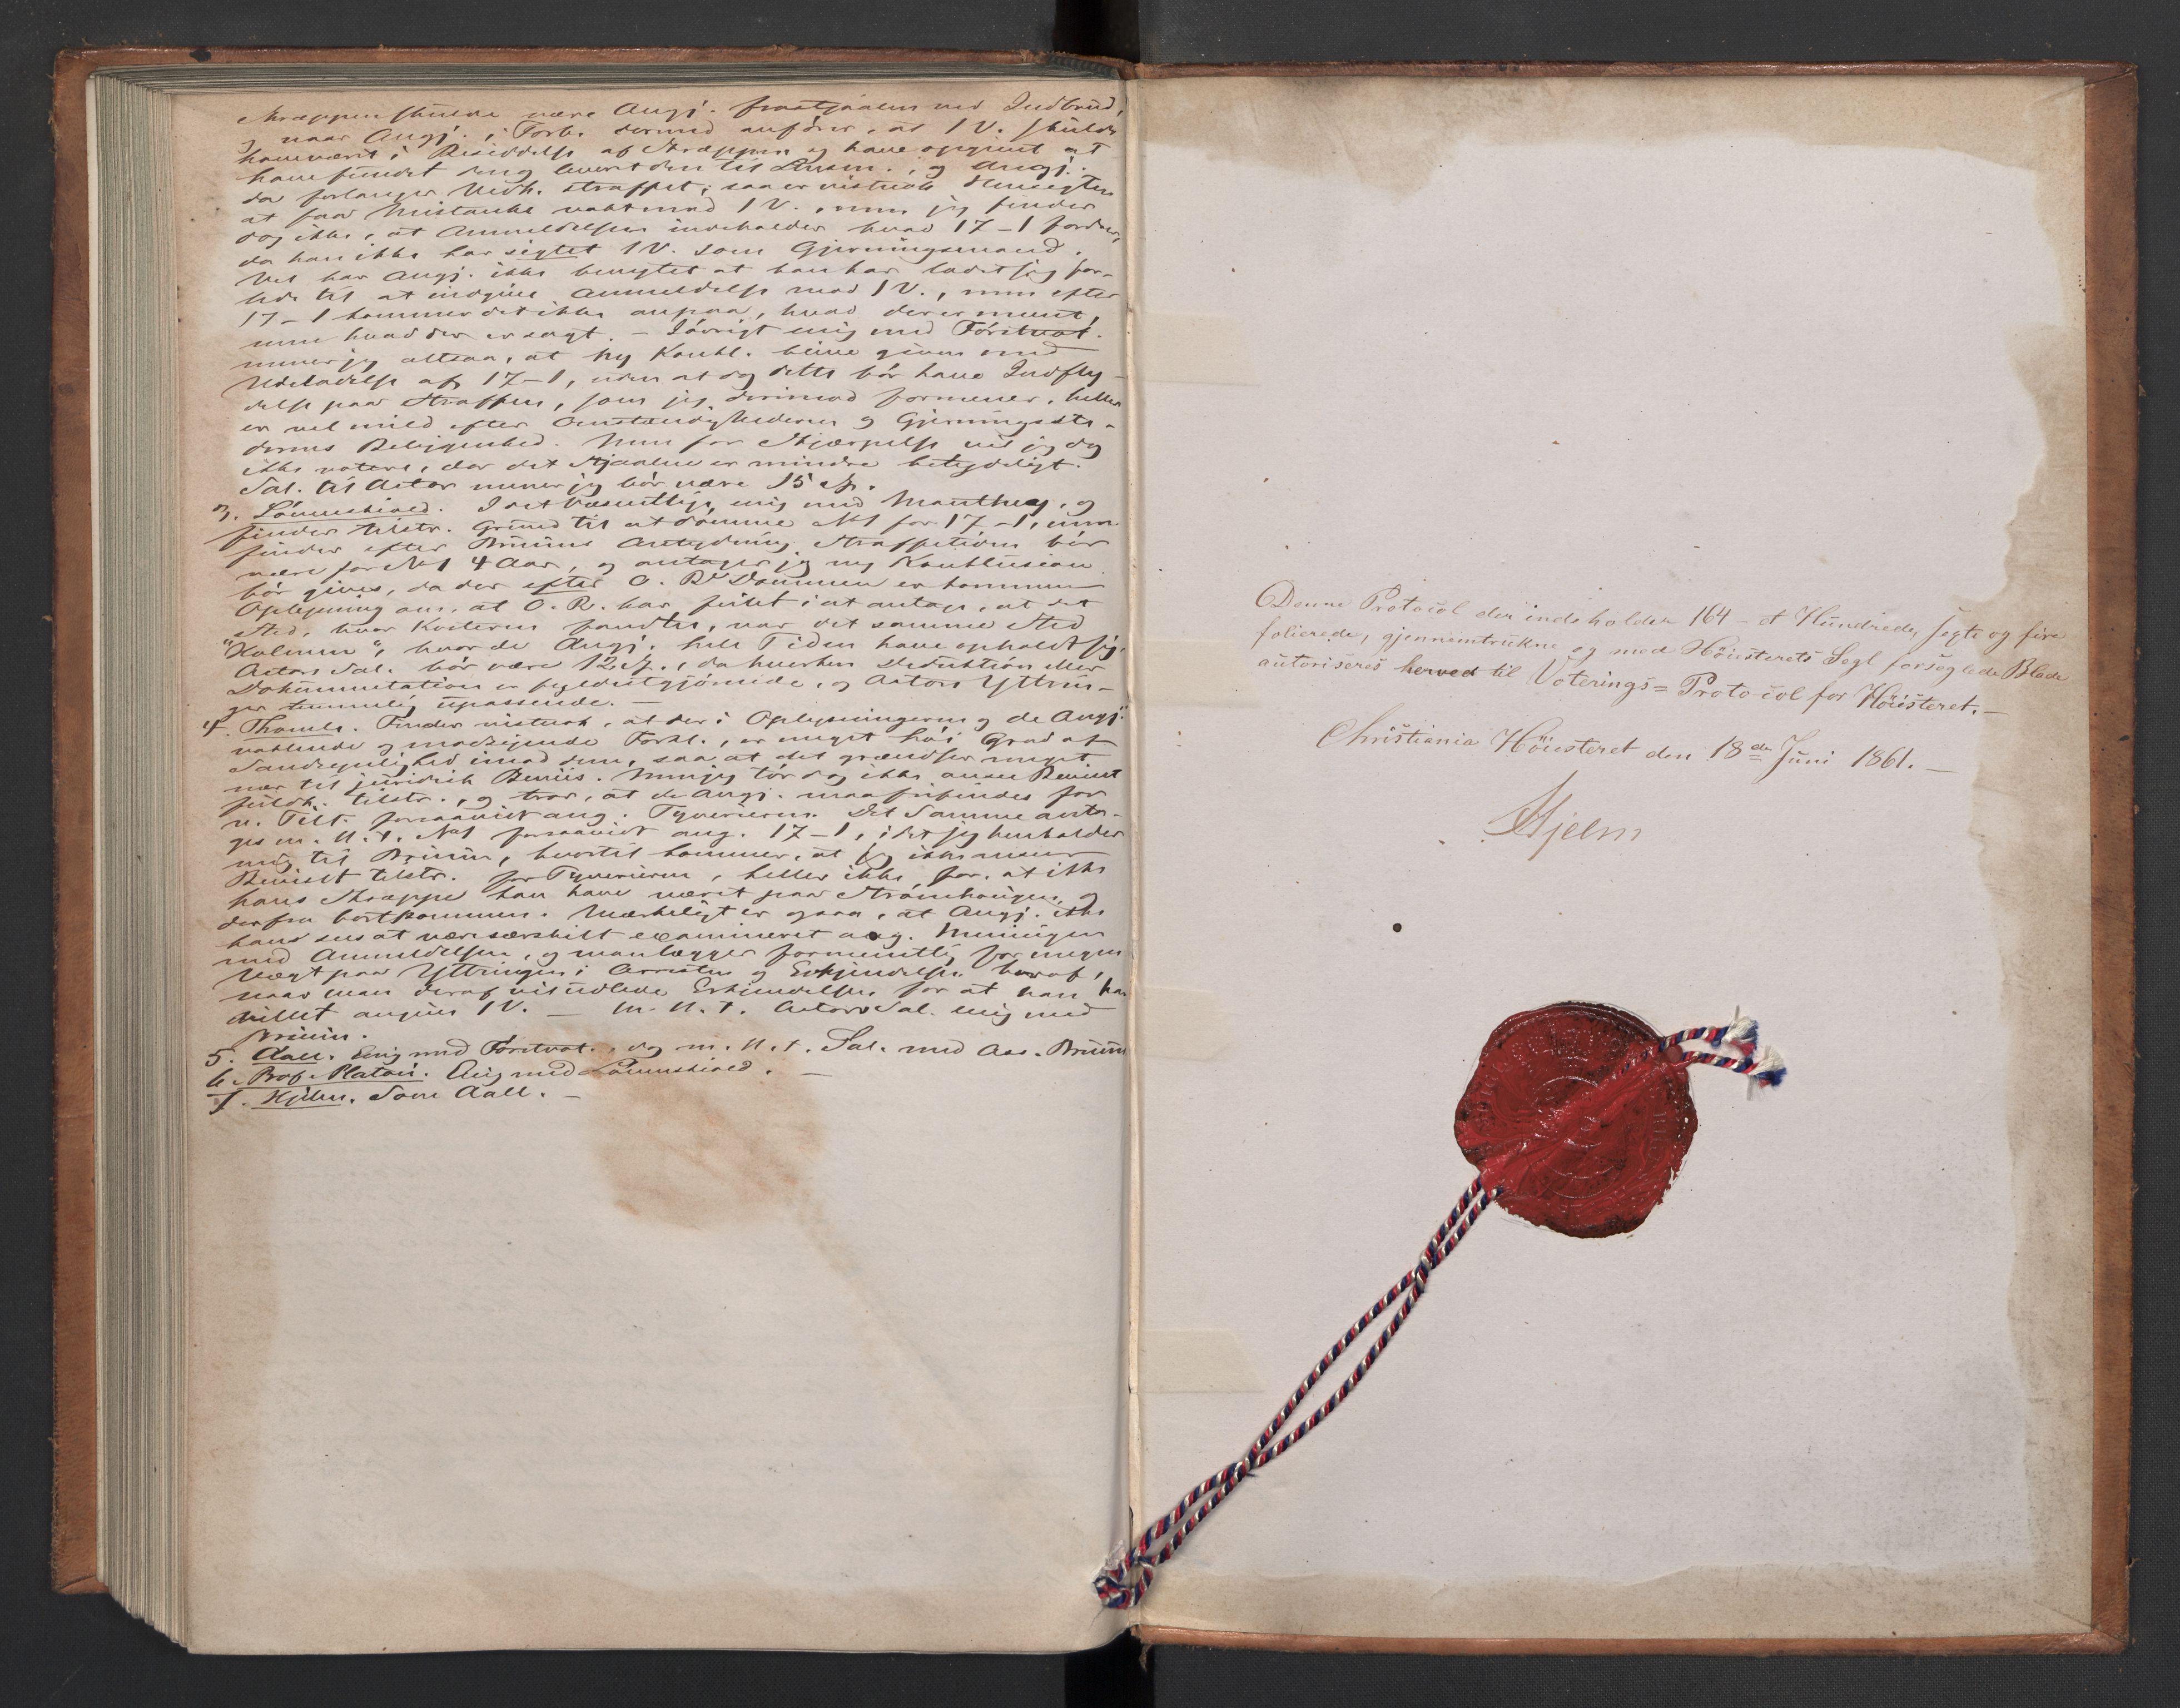 Skræppen skulde være Angj. frastjaalen ved Indbrud,
og naar Angj. i Forb. dermed anfører, at 1 V. skulde
have været i Besiddelse af Skræppen og have opgivet at
have fundet den og leveret den til Lensm., og Angj.
da forlanger Vedk. straffet, saa er vistnok Hensigten
at faa Mistanke vakt mod 1 V., men jeg finder
dog ikke, at Anmeldelsen indeholder hvad 17-1 fordrer,
da han ikke har sigtet 1 V. som Gjerningsmand.
Vel har Angj. ikke benegtet at han har ladet sig for-
lede til at indgive Anmeldelse mod 1 V., men efter
17-1 kommer det ikke anpaa, hvad der er ment,
men hvad der er sagt. – Iøvrigt enig med Førstvot.
mener jeg altsaa, at ny Konkl. blive given med
Udeladelse af 17-1, uden at dog dette bør have Indfly-
delse paa Straffen, som jeg derimod formener, heller
er vel mild efter Omstændighederne og Gjerningsste-
dernes Beliggenhed. Men for Skjærpelse vil jeg dog
ikke votere, da det Stjaalne er mindre betydeligt.
Sal. til Aktor mener jeg bør være 15 Sp.
3. Lømneskiold. I det Væsentlige enig med Manthey, og
finder tilstr. Grund til at dømme No 1 for 17-1, men
finder efter Bruuns Antydning Straffetiden bør
være for No 1 4 Aar, og antager jeg ny Konklusion
bør gives, da der efter O. Rs Dommen er kommen
Oplysning om, at O. R. har feilet i at antage, at det
Sted, hvor Kosterne fandtes, var det samme Sted
"Holmen", hvor de Angj. hele Tiden have opholdt sig.
Aktors Sal. bør være 12 Sp., da hverken Deduktion eller
Dokumentation er fyldestgjørende, og Aktors Yttrin-
ger temmelig upassende. –
4. Thomle. Finder vistnok, at der i Oplysningerne og de Angj.
vaklende og modsigende Forkl., er meget høi Grad af
Sandsynlighed imod dem, saa at det grændser meget
nær til juridisk Beviis. Men jeg tør dog ikke ansee Beviset
fuldk. tilstr., og tror, at de Angj. maa frifindes for
v. Tilt. forsaavidt ang. Tyverierne. Det Samme anta-
ges m. H. t. No 1 forsaavidt ang. 17-1, idet jeg henholder
mig til Bruun, hvortil kommer, at jeg ikke anseer
Beviset tilstr. for Tyverierne, heller ikke for, at ikke
hans Skræppe kan have været paa Strømhaugen og
derfra bortkommen. Mærkeligt er ogsaa, at Angj. ikke
hans sees at være særskilt examineret ang. Meningen
med Anmeldelsen, og man lægger formentlig for megen
Vægt paa Yttringen i Arresten og Erkjendelsen heraf,
naar man deraf vil udlede Erkjendelsen for at han har
villet angive 1 V. – m. H. t. Aktors Sal. enig med
Bruun.
5. Aall. Enig med Førstvot., dog m. H. t. Sal. med Ass. Bruun
6. Prof. Platou. Enig med Lømneskiold. –
7. Hjelm. Som Aall. –
Denne Protocol der indeholder 164 – et Hundrede, sexti og fire
folierede, gjennemtrukne og med Høiesterets Segl forseglede Blade
autoriseres herved til Voterings=Protocol for Høiesteret. –
Christiania Høiesteret den 18de Juni 1861. –
Hjelm